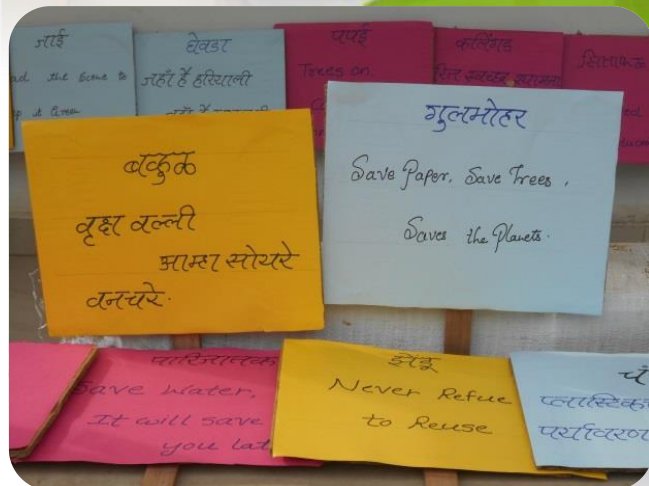 जाई
ad the Scene to
p it Green
घेवडा
जहाँ है हरियाली
पपई
Trees on
कलिंगड
बकुळ
वृक्ष वल्ली
आम्हा सोयरे
वनचरे.
गुलमोहर
Save Paper, Save Trees,
Saves the Planets.
पारिजातक
Save Water,
It will save
you lat
झेंडू
Never Refue
to Reuse
चं
प्लास्टिक
पर्यावरण